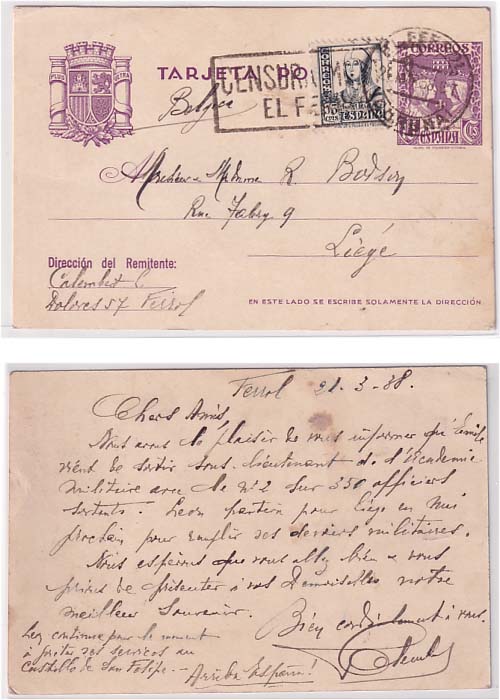 TARJETA PO
CORREOS
CENSUR
EL FE
CORUÑA
ESPAÑA
ESPAÑA
Belgica
Monsieur - Madame R. Bodson
Rue Fabry 9
Liége
Dirección del Remitente:
Calembert C
Dolores 57 Ferrol
EN ESTE LADO SE ESCRIBE SOLAMENTE LA DIRECCIÓN
Ferrol 21-3-38.
Chers Amis,
Nous avons le plaisir de vous informer qu'Emile
vient de sortir sous-lieutenant de l'Academie
militaire avec le nº2 sur 350 officiers
sortants. Leon partira pour Liége en Mai
prochain pour remplir ses devoirs militaires.
Nous esperons que vous allez bien & vous
prions de présenter à vos Demoiselles notre
meilleur Souvenir.
Bien cordialement à vous.
Leon continue pour le moment
à prêter ses services au
Castillo de San Felipe. -
Arriba España!